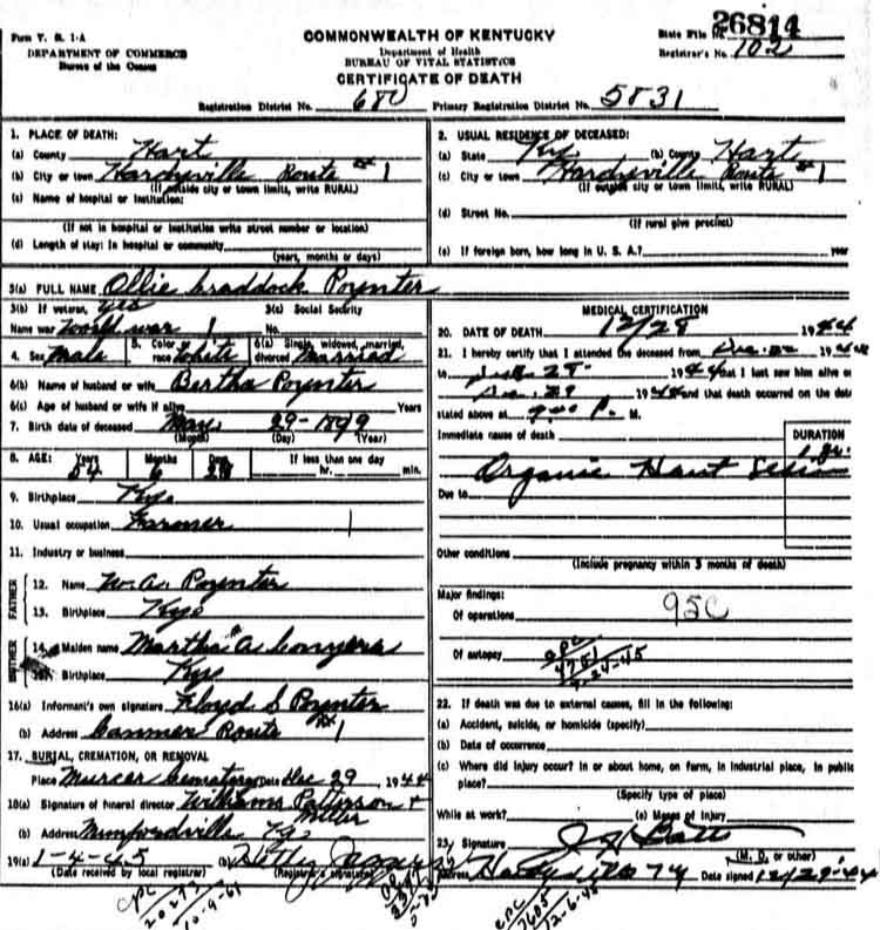 Form V. S. 1-A
DEPARTMENT OF COMMERCE
Bureau of the Census
COMMONWEALTH OF KENTUCKY
Department of Health
BUREAU OF VITAL STATISTICS
CERTIFICATE OF DEATH
State File No. 26814
Registrar's No. 102
Registration District No. 680 Primary Registration District No. 5831
1. PLACE OF DEATH:
(a) County Hart
(b) City or town Hardyville Route #1
(If outside city or town limits, write RURAL)
(c) Name of hospital or institution:
(If not in hospital or institution write street number or location)
(d) Length of stay: In hospital or community
(years, months or days)
2. USUAL RESIDENCE OF DECEASED:
(a) State Ky. (b) County Hart
(c) City or town Hardyville Route #1
(If outside city or town limits, write RURAL)
(d) Street No.
(If rural give precinct)
(e) If foreign born, how long in U. S. A.? year
3(a) FULL NAME Ollie Craddock Poynter
3(b) If veteran, yes 3(c) Social Security
Name war World War 1 No.
4. Sex Male 5. Color race White 6(a) Single, widowed, married, divorced Married
6(b) Name of husband or wife Bertha Poynter
6(c) Age of husband or wife if alive Years
7. Birth date of deceased May 29-1899
(Month) (Day) (Year)
8. AGE: Years 54 Months 6 Days If less than one day
hr. min.
9. Birthplace Ky.
10. Usual occupation Farmer
11. Industry or business
FATHER
12. Name W. A. Poynter
13. Birthplace Ky.
MOTHER
14. Maiden name Martha A Conyers
15. Birthplace Ky.
16(a) Informant's own signature Floyd S Poynter
(b) Address Canmer Route #1
17. BURIAL, CREMATION, OR REMOVAL
Place Murcer Cematery Date Dec 29, 1944
18(a) Signature of funeral director Williams Patterson + Miller
(b) Address Munfordville Ky.
19(a) 1-4-45 (b)
(Date received by local registrar) (Registrar's signature)
MEDICAL CERTIFICATION
20. DATE OF DEATH 12/28 1944
21. I hereby certify that I attended the deceased from 1944
to 1944 that I last saw him alive on
1944 and that death occurred on the date
stated above at P. M.
Immediate cause of death DURATION
Organic Heart
Due to
Other conditions
(Include pregnancy within 3 months of death)
Major findings:
Of operations 95C
Of autopsy
22. If death was due to external causes, fill in the following:
(a) Accident, suicide, or homicide (specify)
(b) Date of occurrence
(c) Where did injury occur? In or about home, on farm, in industrial place, in public
place?
(Specify type of place)
While at work? (e) Means of injury
23. Signature
(M. D. or other)
Address Hardyville Ky Date signed 12/29-44
CPC
20273
10-9-61
CPC
7605
12-6-45